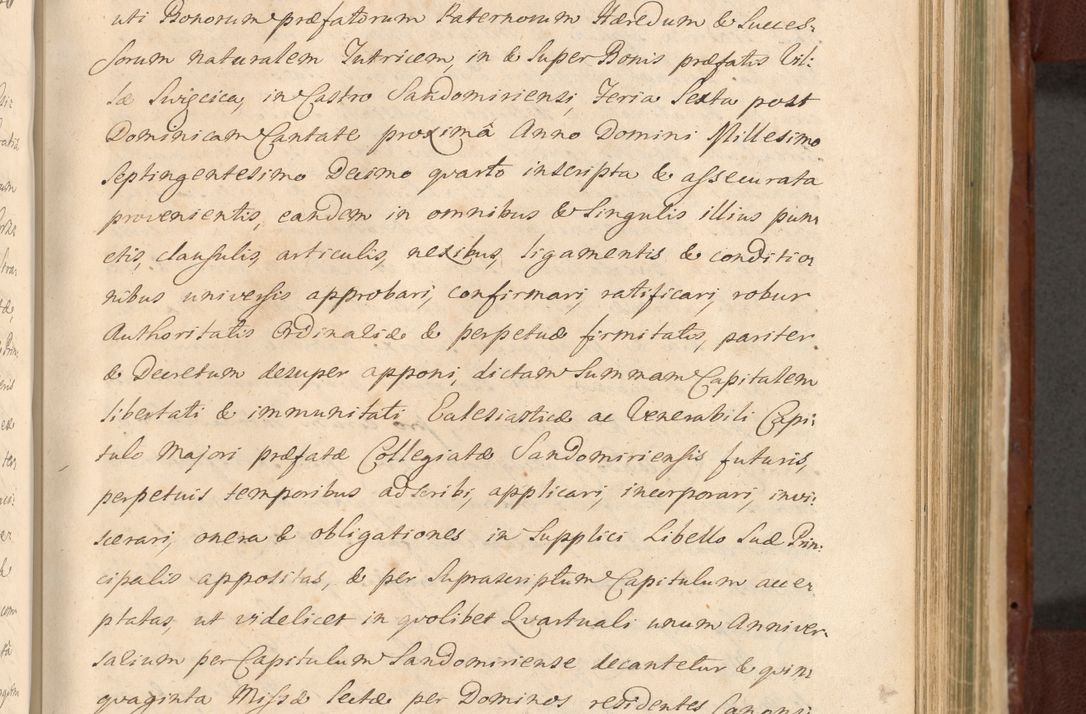 uti Bonorum præfatorum Paternorum Hæredum & Succes:
sorum naturalem Tutricem, in & super Bonis præfatis Vil:
læ Swięcica, in Castro Sandomiriensi, Feria Sexta post
Dominicam Cantate proximâ Anno Domini Millesimo
Septingentesimo Decimo quarto inscripta & assecurata
provenientis, eandem in omnibus & singulis illius pun:
ctis, clausulis, articulis, nexibus, ligamentis & conditio:
nibus universis approbari, confirmari, ratificari, robur
Authoritatis Ordinariæ & perpetuæ firmitatis, pariter
& Decretum desuper apponi, dictam Summam Capitalem
libertati & immunitati Ecclesiasticæ ac Venerabili Capi:
tulo Majori præfatæ Collegiatæ Sandomiriensis futuris,
perpetuis temporibus adscribi, applicari, incorporari, invi:
scerari, onera & obligationes in Supplici Libello Suæ Prin:
cipalis appositas, & per Suprascriptum Capitulum acce:
ptatas, ut videlicet in quolibet Quartuali unum Anniver:
sarium per Capitulum Sandomiriense decantetur & quin:
quaginta Missæ lectæ per Dominos residentes Canoni: